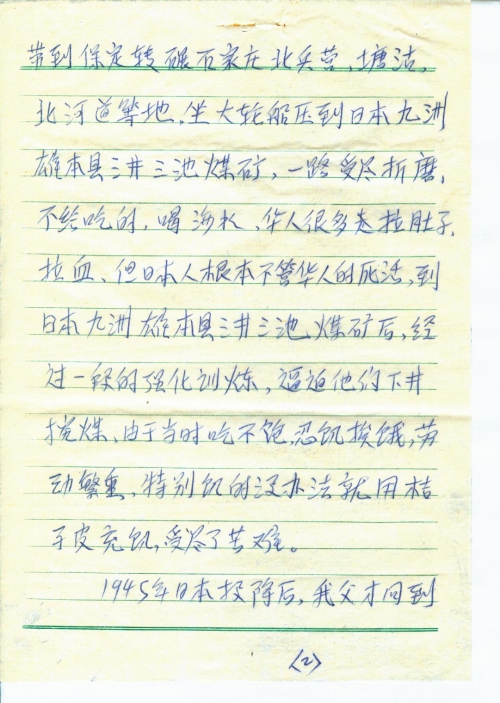 带到保定转碾石家庄北兵营,塘沽,
北河道等地,坐大轮船压到日本九洲
雄本县三井三池煤矿,一路受尽折磨,
不给吃的,喝海水,华人很多是拉肚子,
拉血、但日本人根本不管华人的死活,到
日本九洲雄本县三井三池煤矿后,经
过一段的强化训炼,逼迫他们下井
挖煤、由于当时吃不饱,忍饥挨饿,劳
动繁重,特别饥的没办法就用桔
子皮充饥,受尽了苦难。
1945年日本投降后,我父才回到
〈2〉